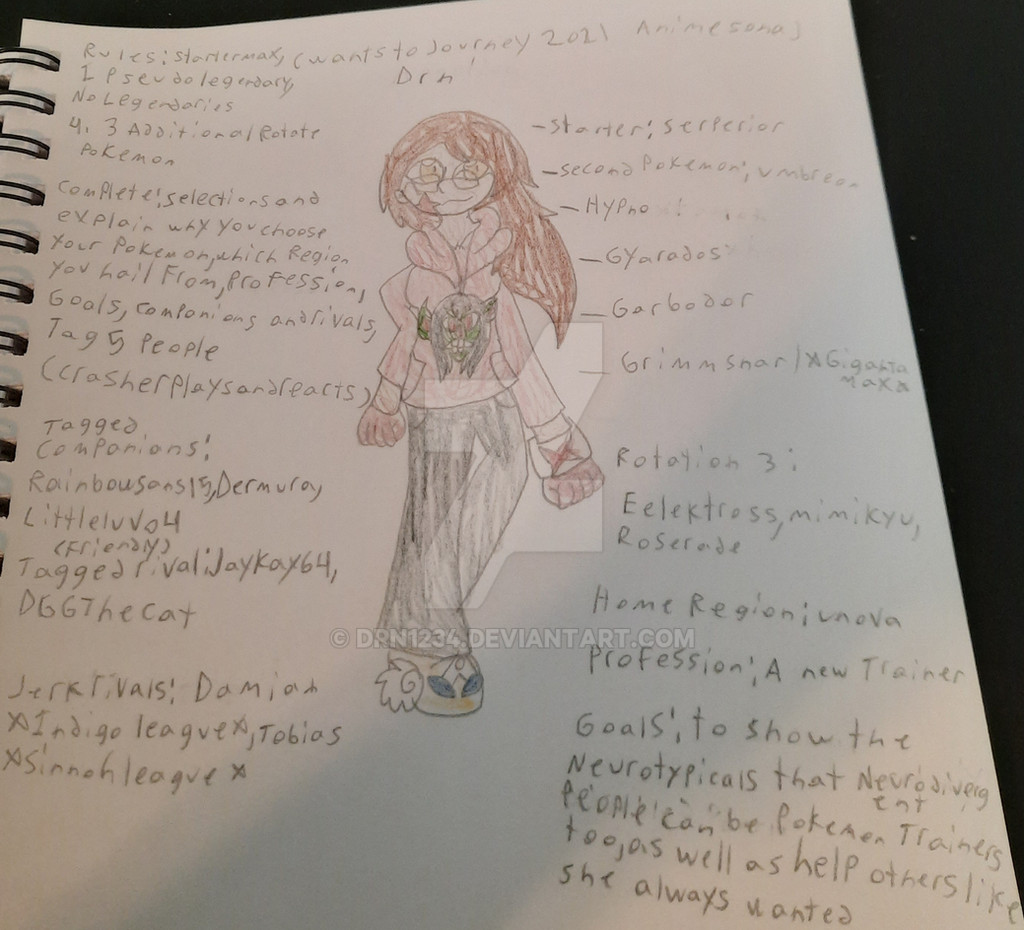 Rules: startermax, (wants to Journey 2021 Animesona)
1 Pseudo legendary, Drn
No Legendaries
4. 3 Additional Rotate
Pokemon
complete: selections and
explain why you choose
your Pokemon, which Region
you hail From, Profession,
Goals, companions and rivals,
Tag 5 People
(crasherplaysandreacts)
Tagged
Companions:
Rainbowsans15, Dermuray,
Littleluv04
(Friendly)
Tagged rival: JayKay64,
DGGTheCat
Jerk rivals: Damian
*Indigo league*, Tobias
*Sinnoh league*
-starter: Serperior
-second Pokemon: umbreon
-Hypno
-Gyarados
-Garbodor
- Grimmsnarl *Giganta
max*
Rotation 3:
Eelektross, mimikyu,
Roserade
Home Region: unova
Profession: A new Trainer
Goals: to show the
Neurotypicals that Neurodiverg
ent
People can be Pokemon Trainers
too, as well as help others like
she always wanted
© DRN1234.DEVIANTART.COM